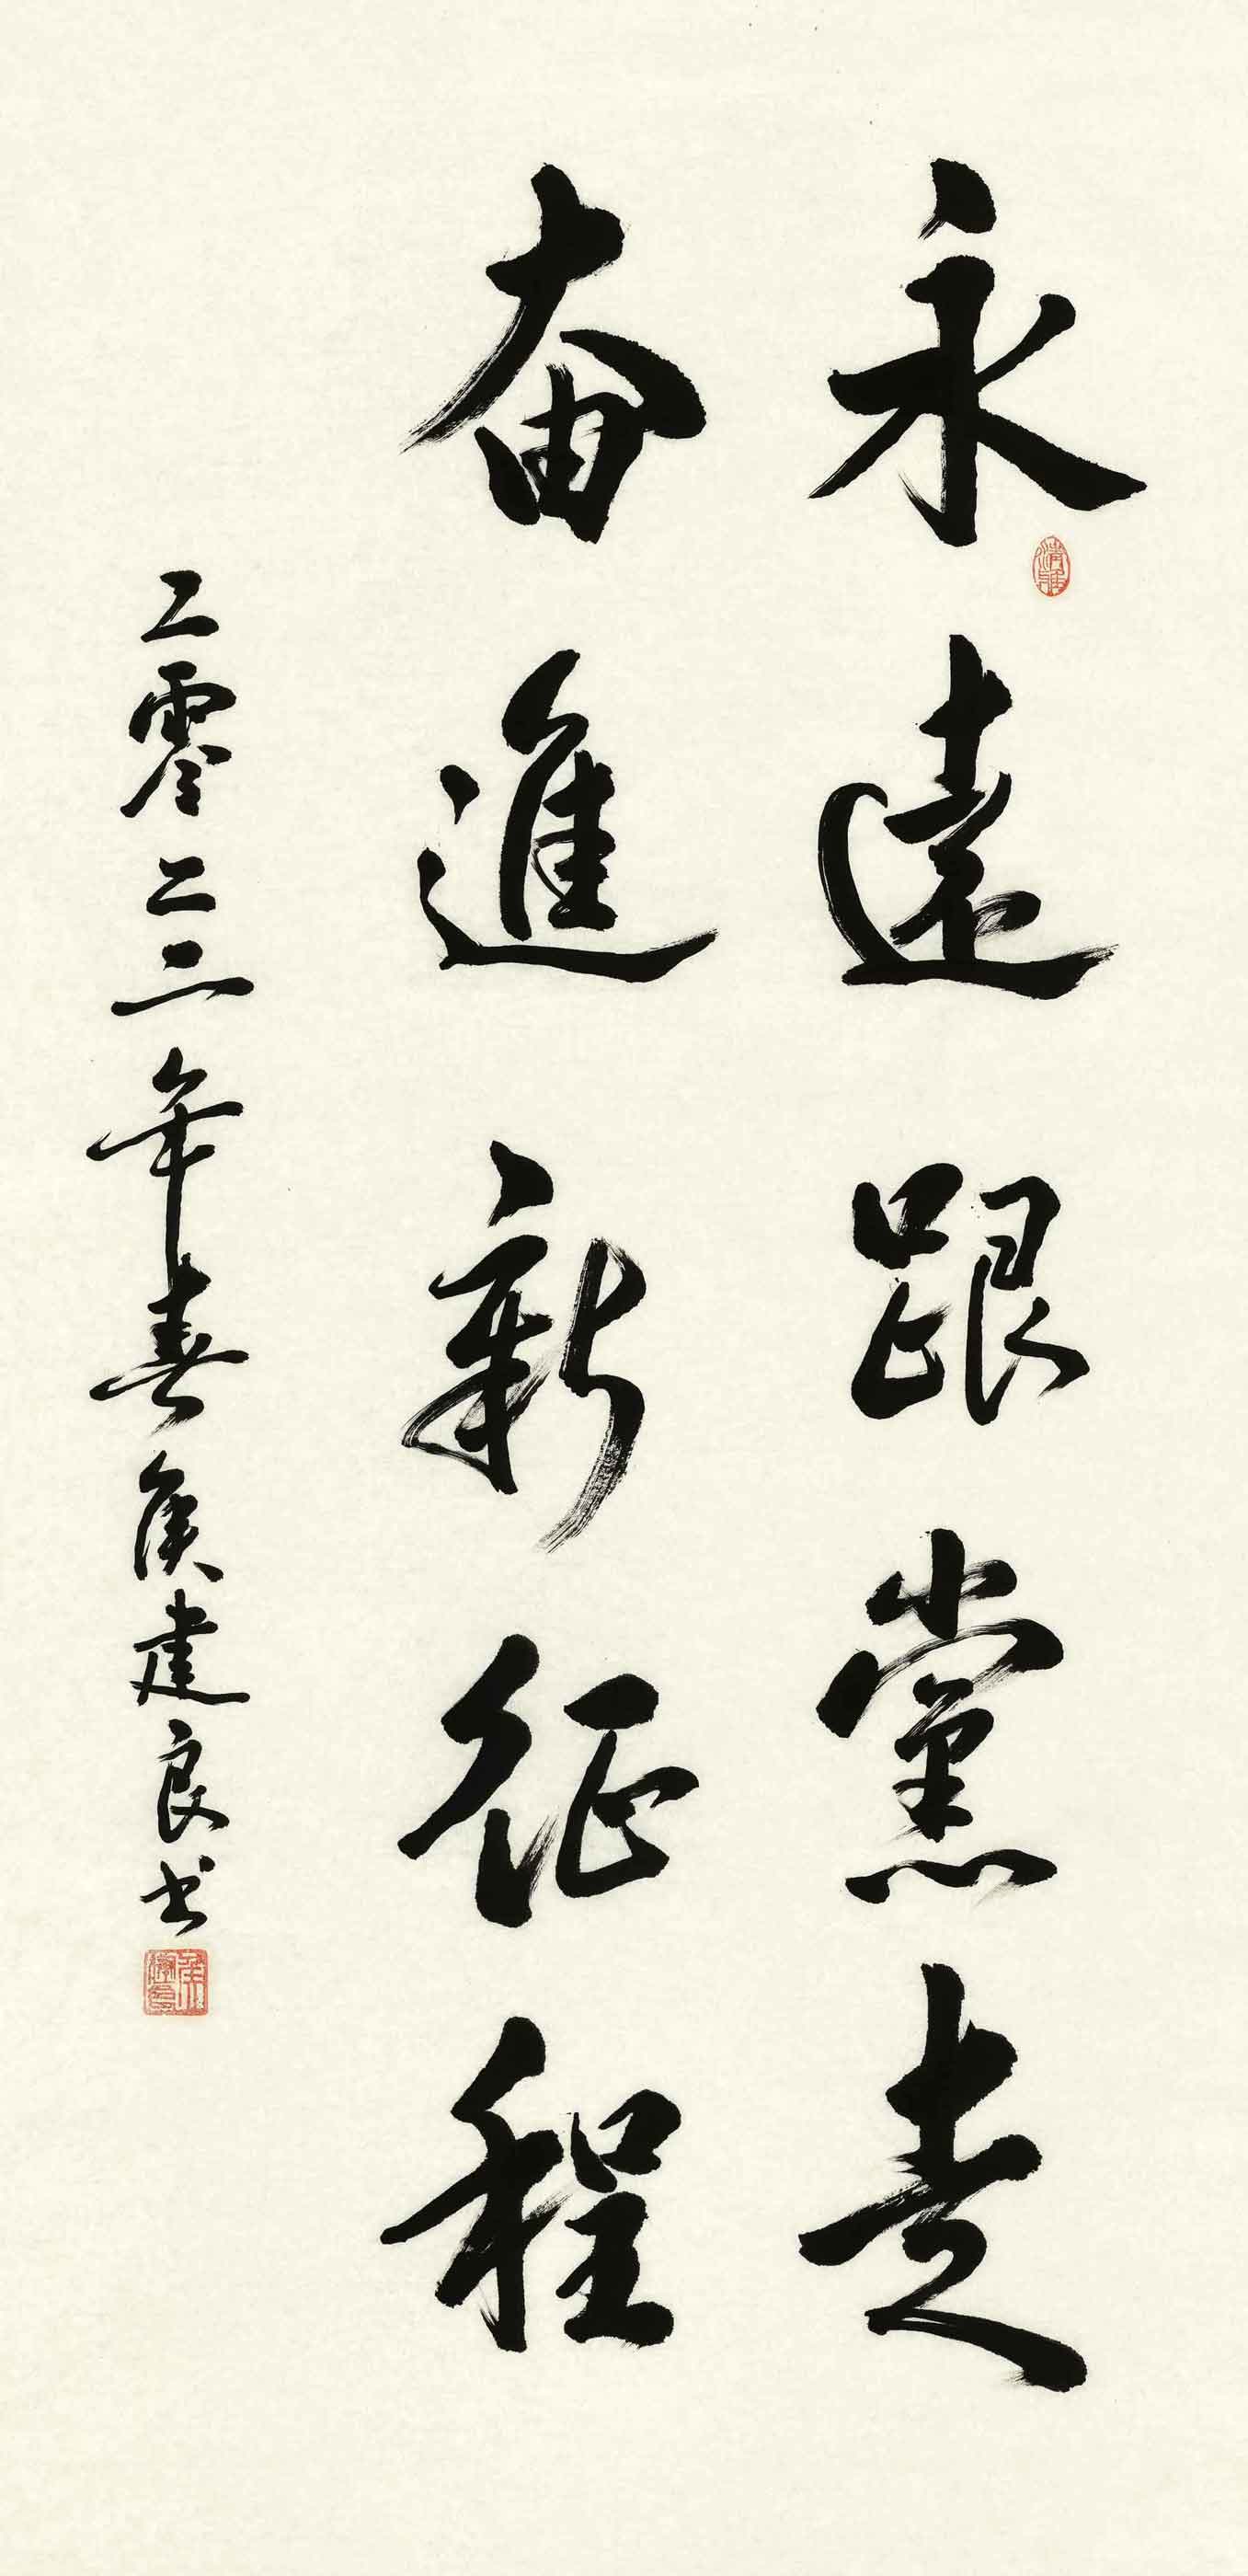 永遠跟黨走
奋進新征程
二零二二年春侯建良书